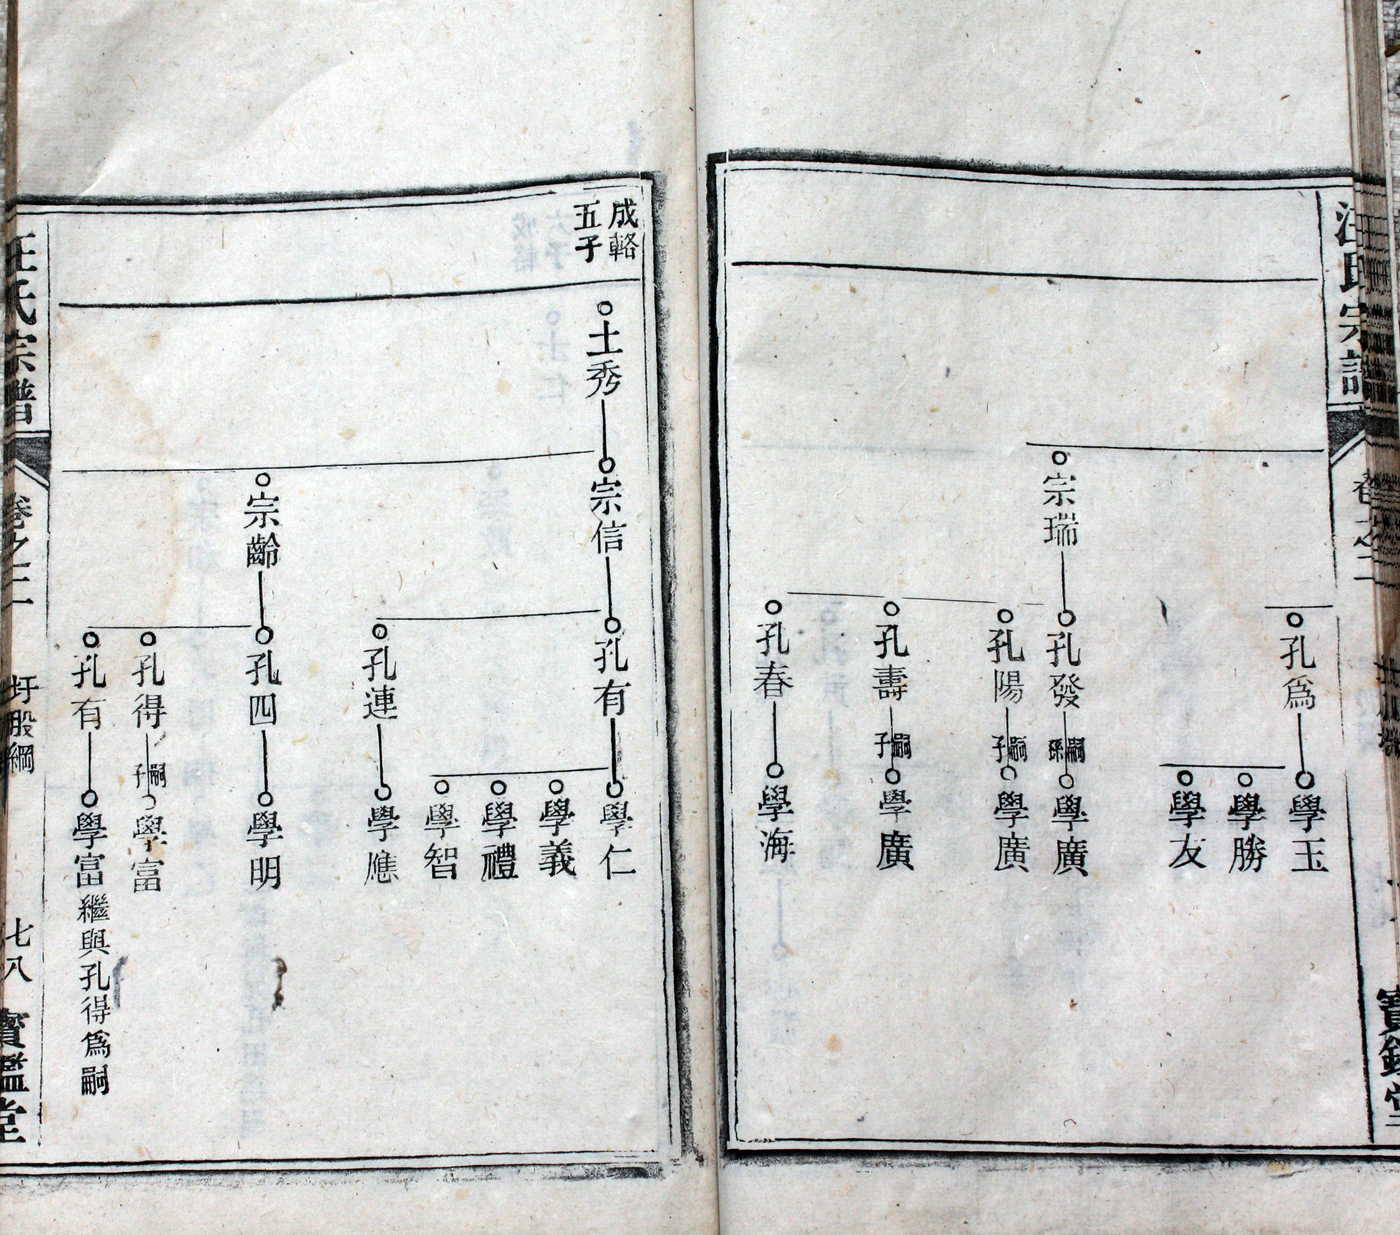 汪氏宗譜
卷之二
寶鑑堂
孔爲
學玉
學勝
學友
宗瑞
孔發
嗣孫
學廣
孔陽
嗣子
學廣
孔壽
嗣子
學廣
孔春
學海
成輅
五子
士秀
宗信
孔有
學仁
學義
學禮
學智
孔連
學應
宗齡
孔四
學明
孔得
嗣子
學富
孔有
學富繼與孔得爲嗣
汪氏宗譜
卷之二
圩股綱
七八
寶鑑堂